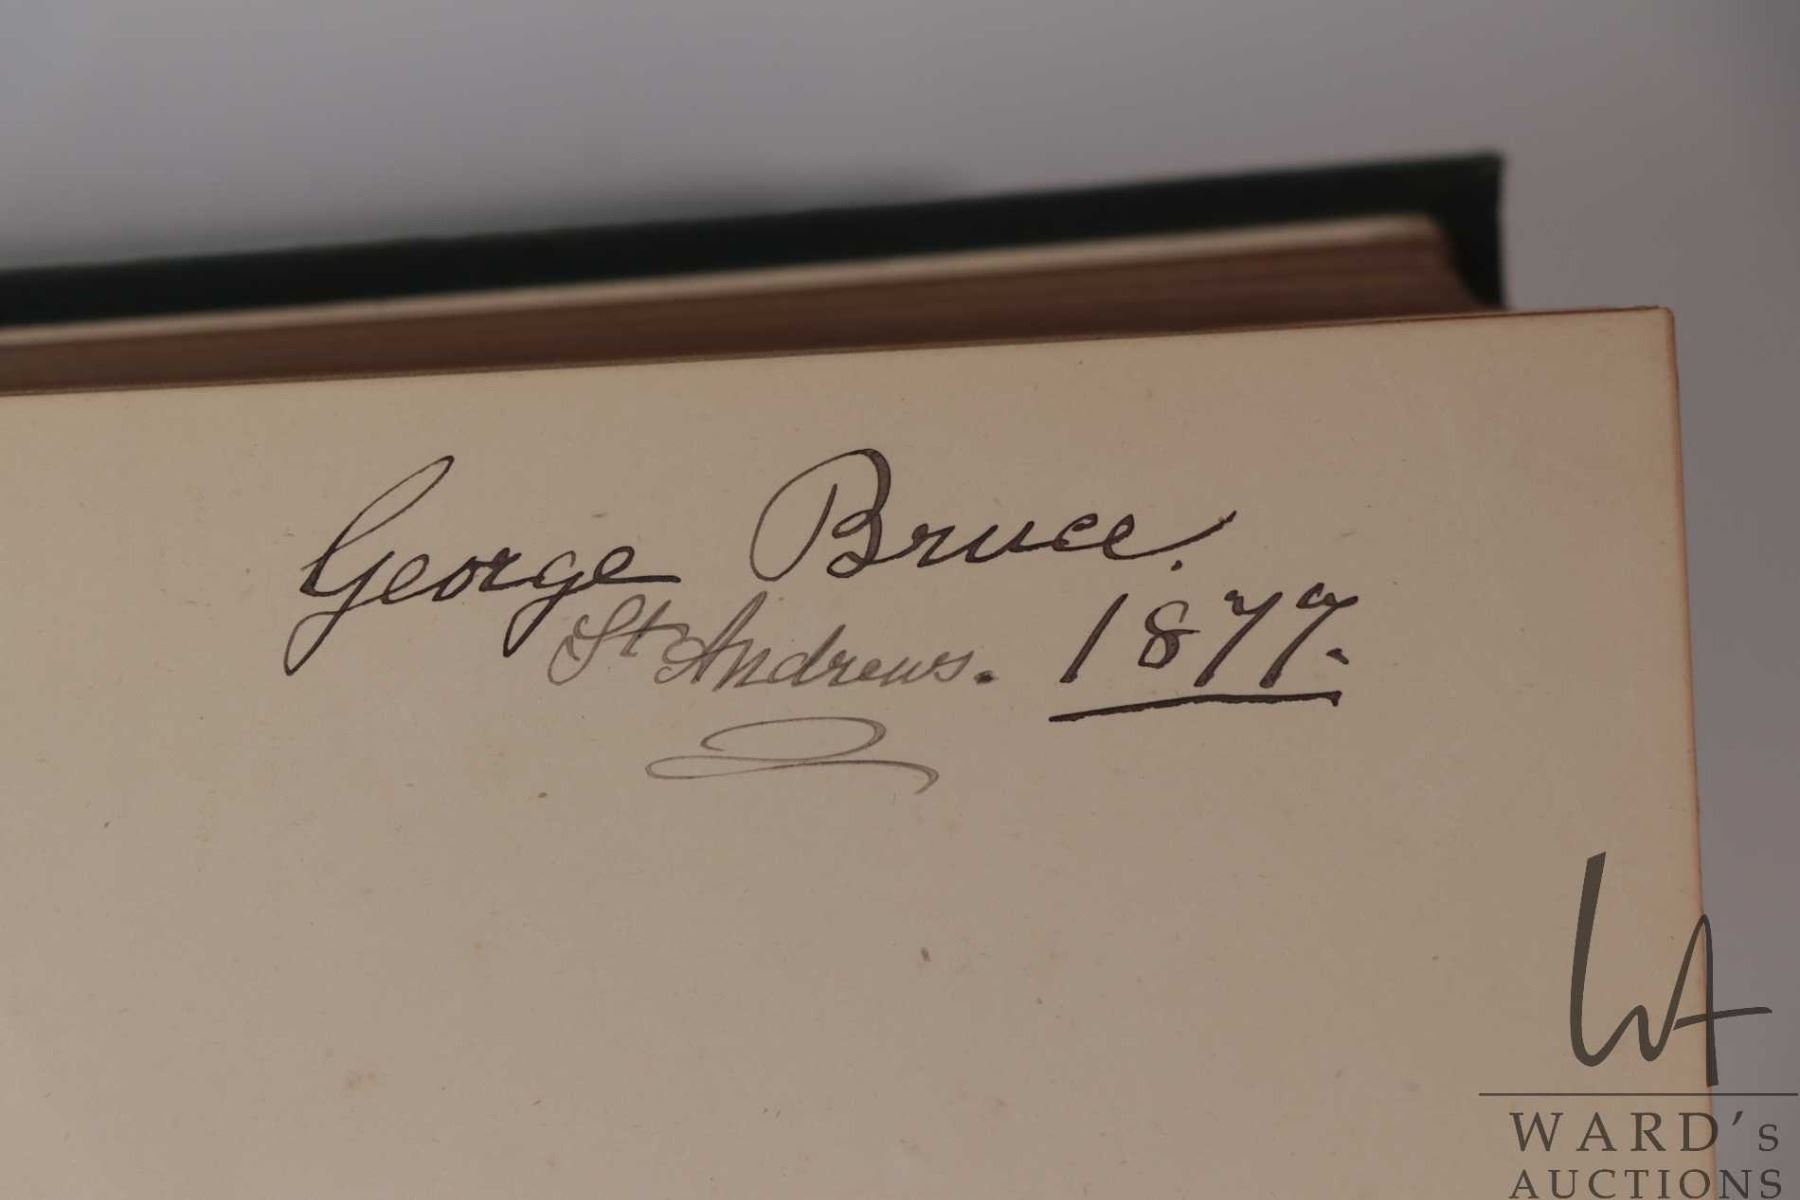 George Bruce.
St Andrews. 1877.
WA
WARD's
AUCTIONS